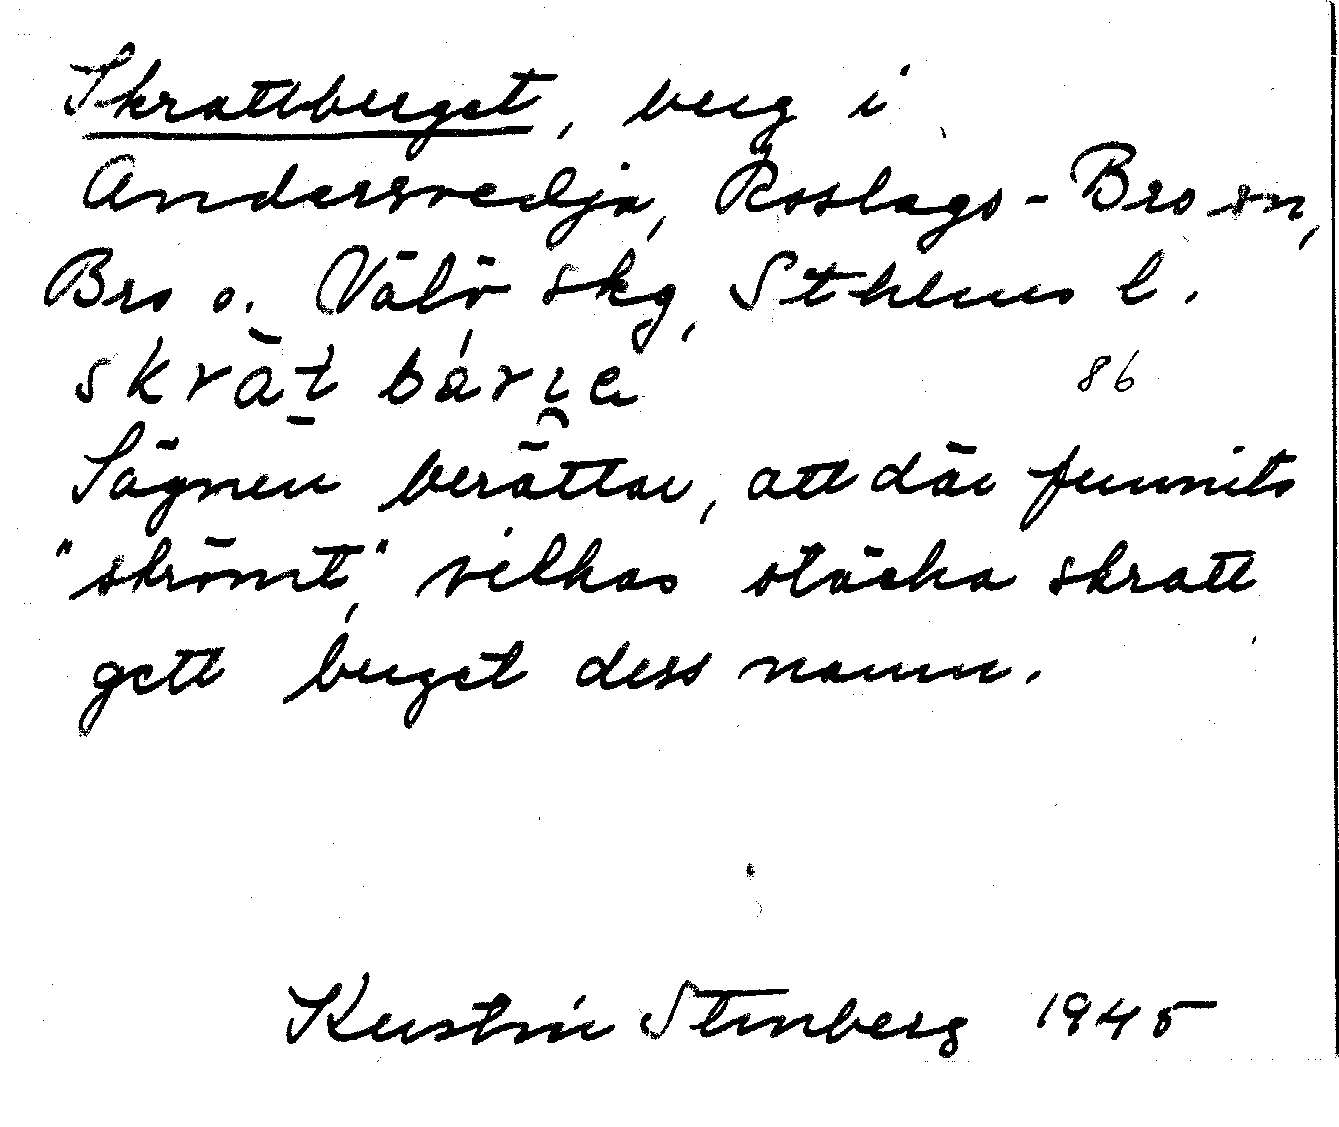 Skrattberget, berg i
Andersvedja, Roslags-Bro sn,
Bro o. Vätö skg, Sthlms l.
skrat bárie 86
Sägnen berättar, att där funnits
"skrömt", vilkas stäcka skratt
gett berget dess namn.
Kerstin Stenberg 1945